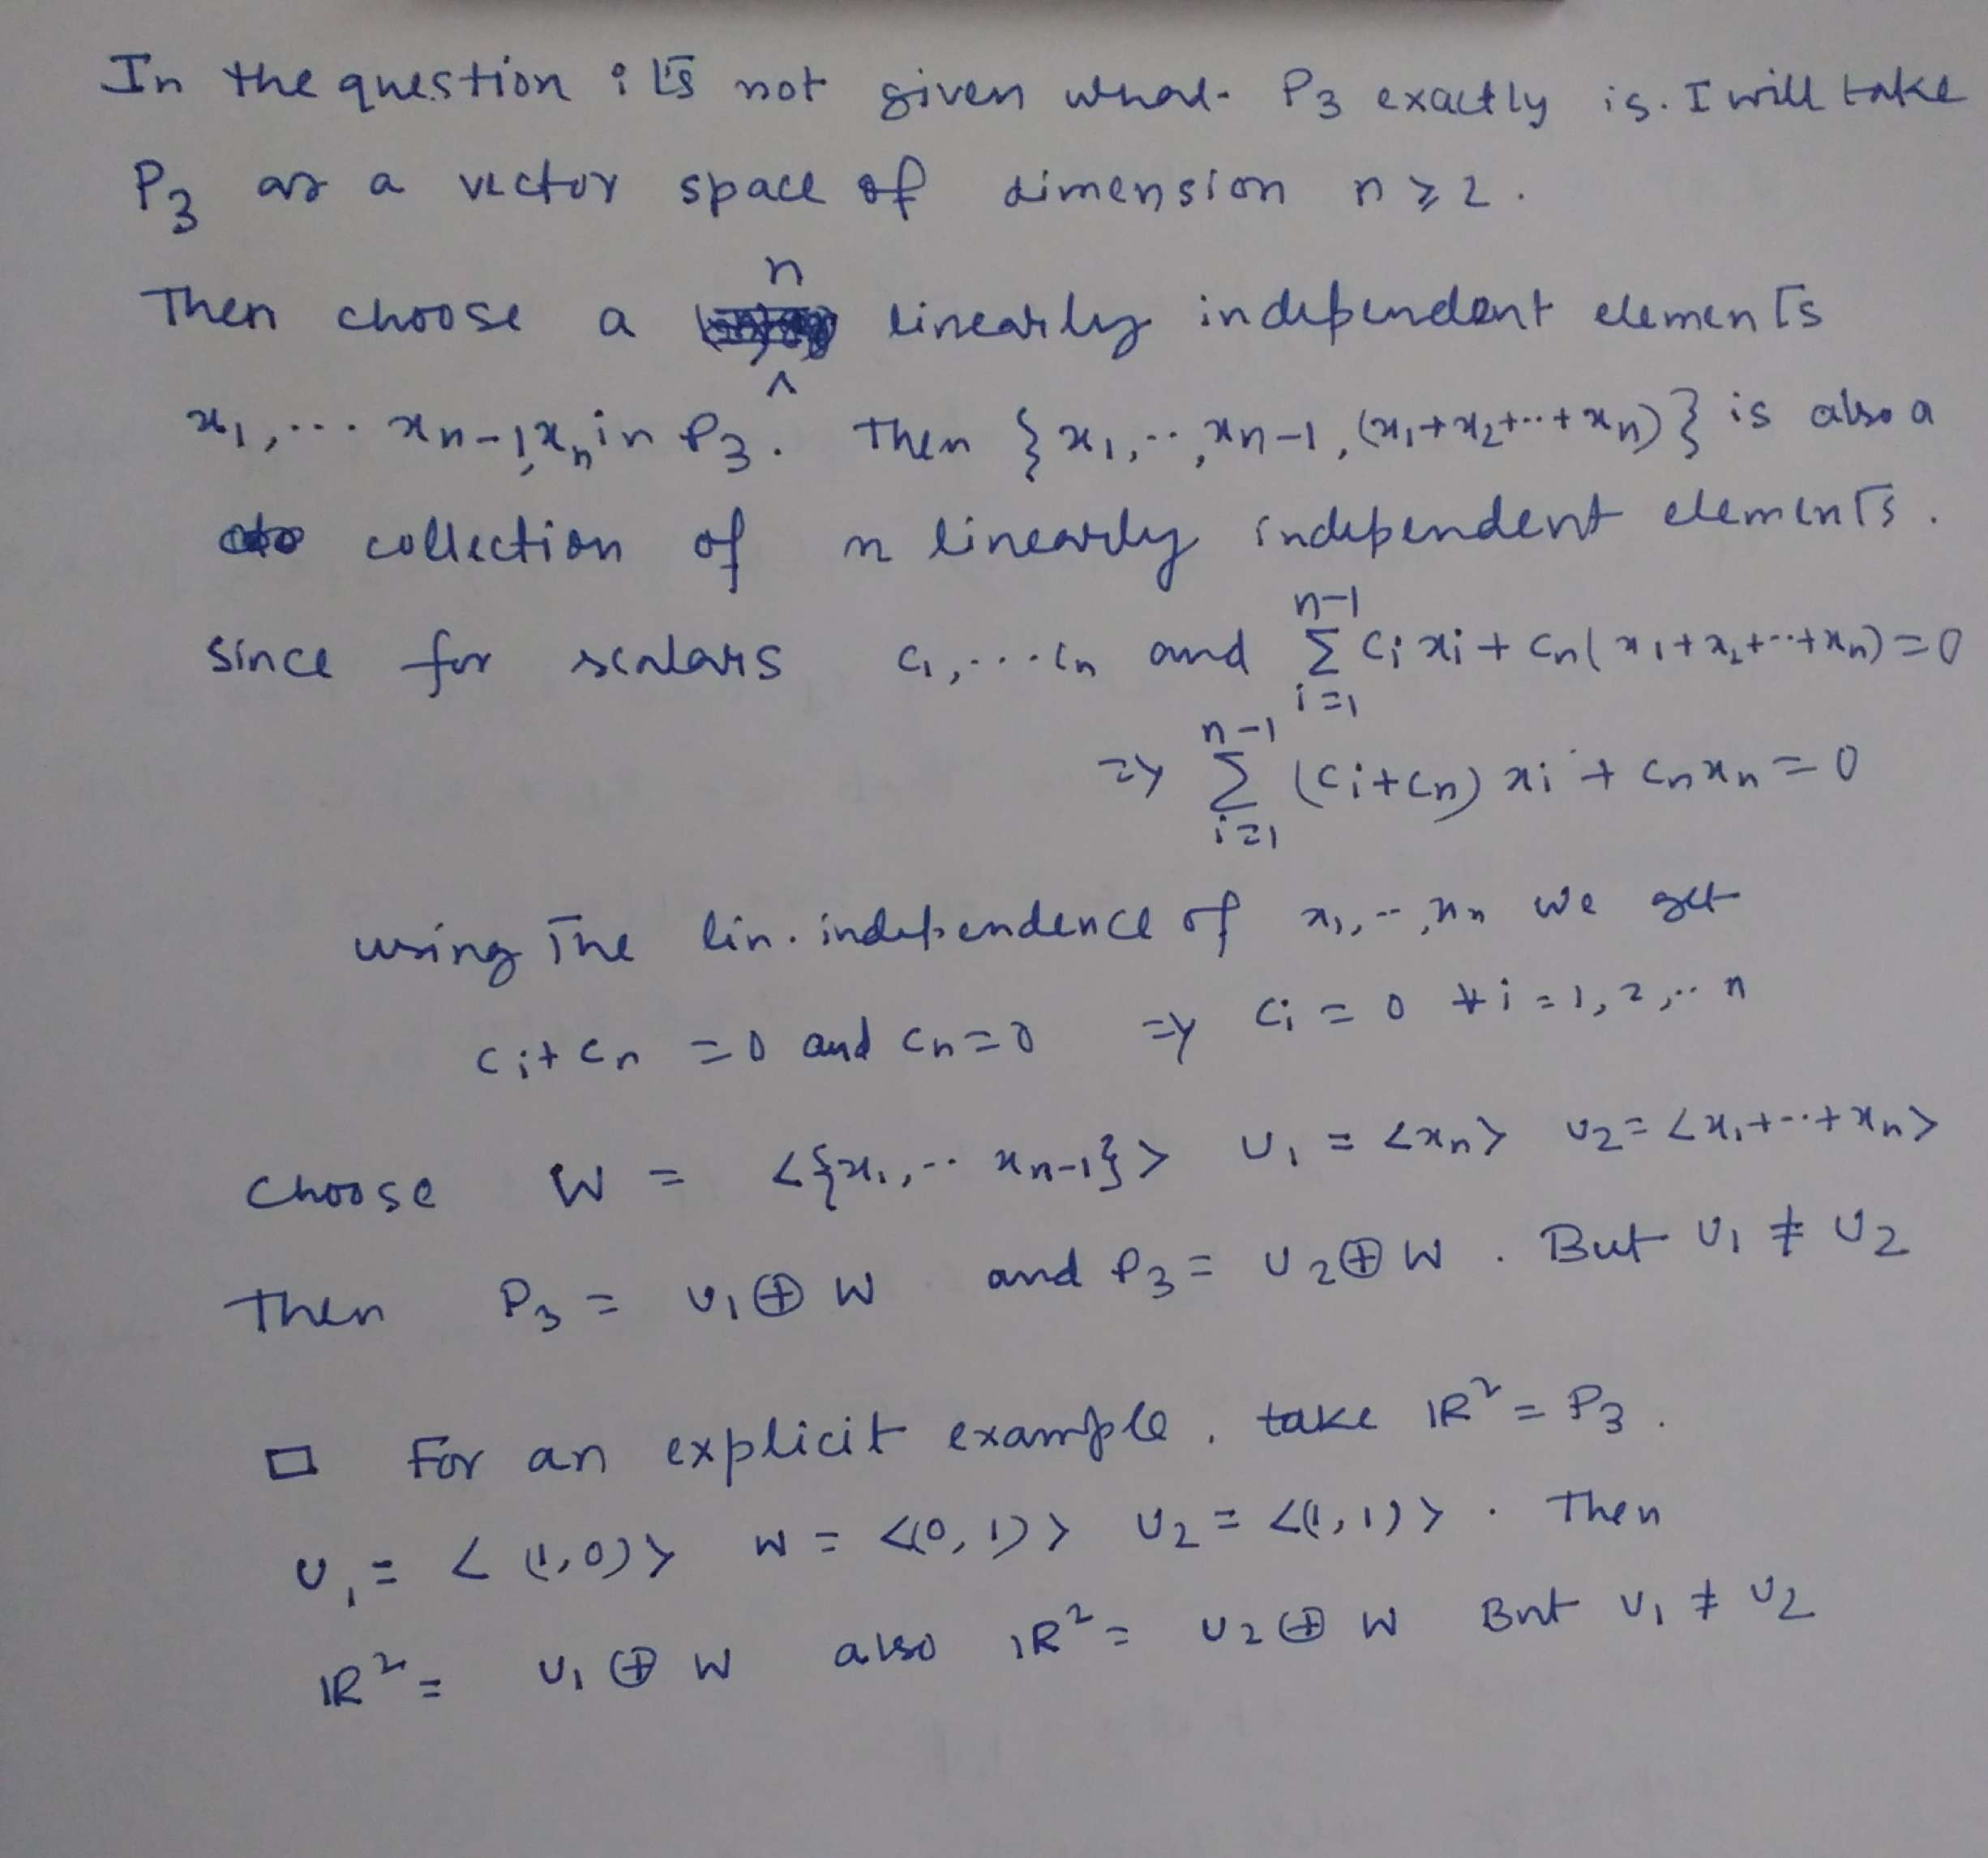 In the question it's not given what P₃ exactly is. I will take
P₃ as a vector space of dimension n ≥ 2.
Then choose a n linearly independent elements
x₁, ... xₙ₋₁, xₙ in P₃. Then {x₁, .., xₙ₋₁, (x₁+x₂+..+xₙ)} is also a
collection of n linearly independent elements.
since for scalars c₁, ... cₙ and ∑ᵢ₌₁ⁿ⁻¹ cᵢxᵢ + cₙ(x₁+x₂+..+xₙ) = 0
=> ∑ᵢ₌₁ⁿ⁻¹ (cᵢ+cₙ) xᵢ + cₙxₙ = 0
using the lin. independence of x₁, .., xₙ we get
cᵢ+cₙ = 0 and cₙ = 0 => cᵢ = 0 ∀ i = 1, 2, .. n
Choose W = <{x₁, .. xₙ₋₁}> U₁ = <xₙ> U₂ = <x₁+..+xₙ>
Then P₃ = U₁ ⊕ W and P₃ = U₂ ⊕ W. But U₁ ≠ U₂
□ For an explicit example, take ℝ² = P₃.
U₁ = <(1,0)> W = <(0,1)> U₂ = <(1,1)>. Then
ℝ² = U₁ ⊕ W also ℝ² = U₂ ⊕ W But U₁ ≠ U₂